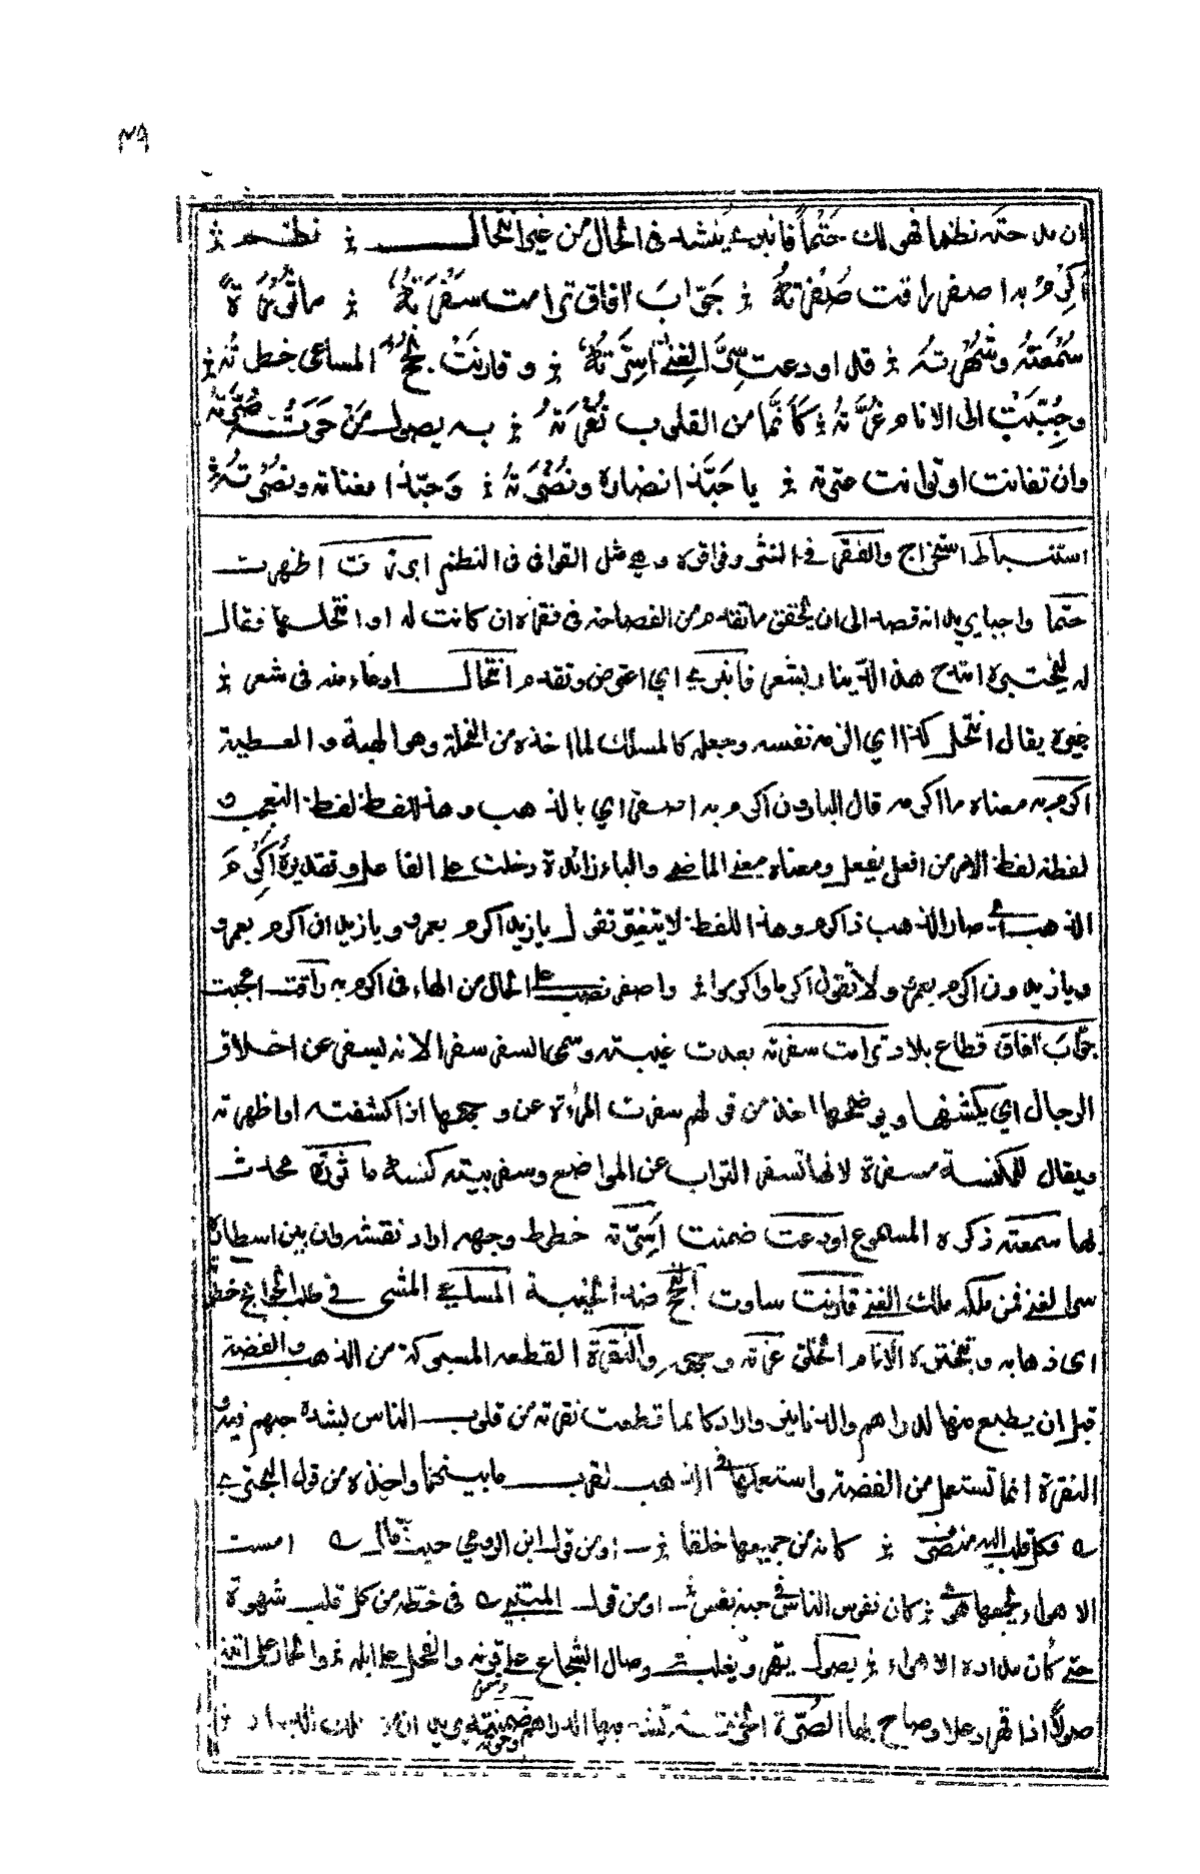 ٣٩
ان مدحته نظما فهو لك حتما فانبرى ينشد في الحال من غير انتحال نظم
أكرم به اصفر راقت صفرته جواب آفاق ترامت سفرته مأثورة
سمعته وشهرته قد اودعت سر الغنى اسرته وقارنت نجح المساعي خطرته
وحببت الى الانام غرته كأنما من القلوب نقرته به يصول من حوته صرته
وان تفانت او توانت عترته يا حبذا نضاره ونضرته وحبذا مغناته ونصرته
استنباط استخراج والفقر في النثر وفاقره وهي مثل القوافي في النظم ابرزت اظهرت
حتما واجبا يريد انه قصد الى ان يحقق ما تقدم من الفصاحة في فقره ان كانت له او انتحلها فقال
له ليختبره امتدح هذا الدينار بشعر فانبرى اي اعترض وتقدم انتحال ادعاء منه في شعر
غيره يقال انتحل كذا اي الزمه نفسه وجعله كالمسلك لما اخذه من النحلة وهو الهبة والعطية
اكرم به معناه ما اكرمه قال البادون اكرم به اصفر اي بالذهب وهذا اللفظ لفظ التعجب و
لفظه لفظ الامر من افعل يفعل ومعناه معنى الماضي والباء زائدة دخلت على الفاعل وتقديره أكرم
الذهب اي صار الذهب ذا كرم وهذا اللفظ لا يتغير تقول يا زيد اكرم بعمرو ويا زيدان اكرم بعمرو
ويا زيدون اكرم بعمرو ولا تقول اكرما واكرموا واصفر نصب على الحال من الهاء في اكرم به راقت اعجبت
جواب آفاق قطاع بلاد ترامت سفرته بعدت غيبته وسمي السفر سفرا لانه يسفر عن اخلاق
الرجال اي يكشفها ويوضحها اخذ من قولهم سفرت المرأة عن وجهها اذا كشفته او اظهرته
ويقال للمكنسة مسفرة لانها تسفر التراب عن المواضع وسفر بيته كنسه مأثورة محدث
بها سمعته ذكره المسموع اودعت ضمنت اسرته خطوط وجهه اراد نقشه وان بين اسطاره
سر الغنى فمن ملكه ملك الغنى قارنت ساوت النجح ضد الخيبة المساعي المشي في طلب الحوائج خطرته
اي ذهابه وتبختره الانام الخلق غرته وجهه والنقرة القطعة المسبوكة من الذهب والفضة
قبل ان يطبع منها الدراهم والدنانير واراد كانما قطعت نقرته من قلوب الناس لشدة حبهم فيه و
النقرة انما تستعمل من الفضة واستعملها في الذهب لقرب ما بينهما واخذه من قول البحتري
فكل قلب اليه منصرف كانه من جميعها خلقا او من قول ابن الرومي حيث قال امست
الاهواء يجمعها هوى كان نفوس الناس في حبه نفس او من قول المتنبي في خطه من كل قلب شهوة
حتى كأن مداده الاهواء يصول يقهر ويغلب وصال الشجاع على قرنه والفحل على ابله والحمار على اتنه
صولا اذا قهر وعلا وصاح بها الصرة الخرقة تشد بها الدراهم يريد ان من ملك الدينار